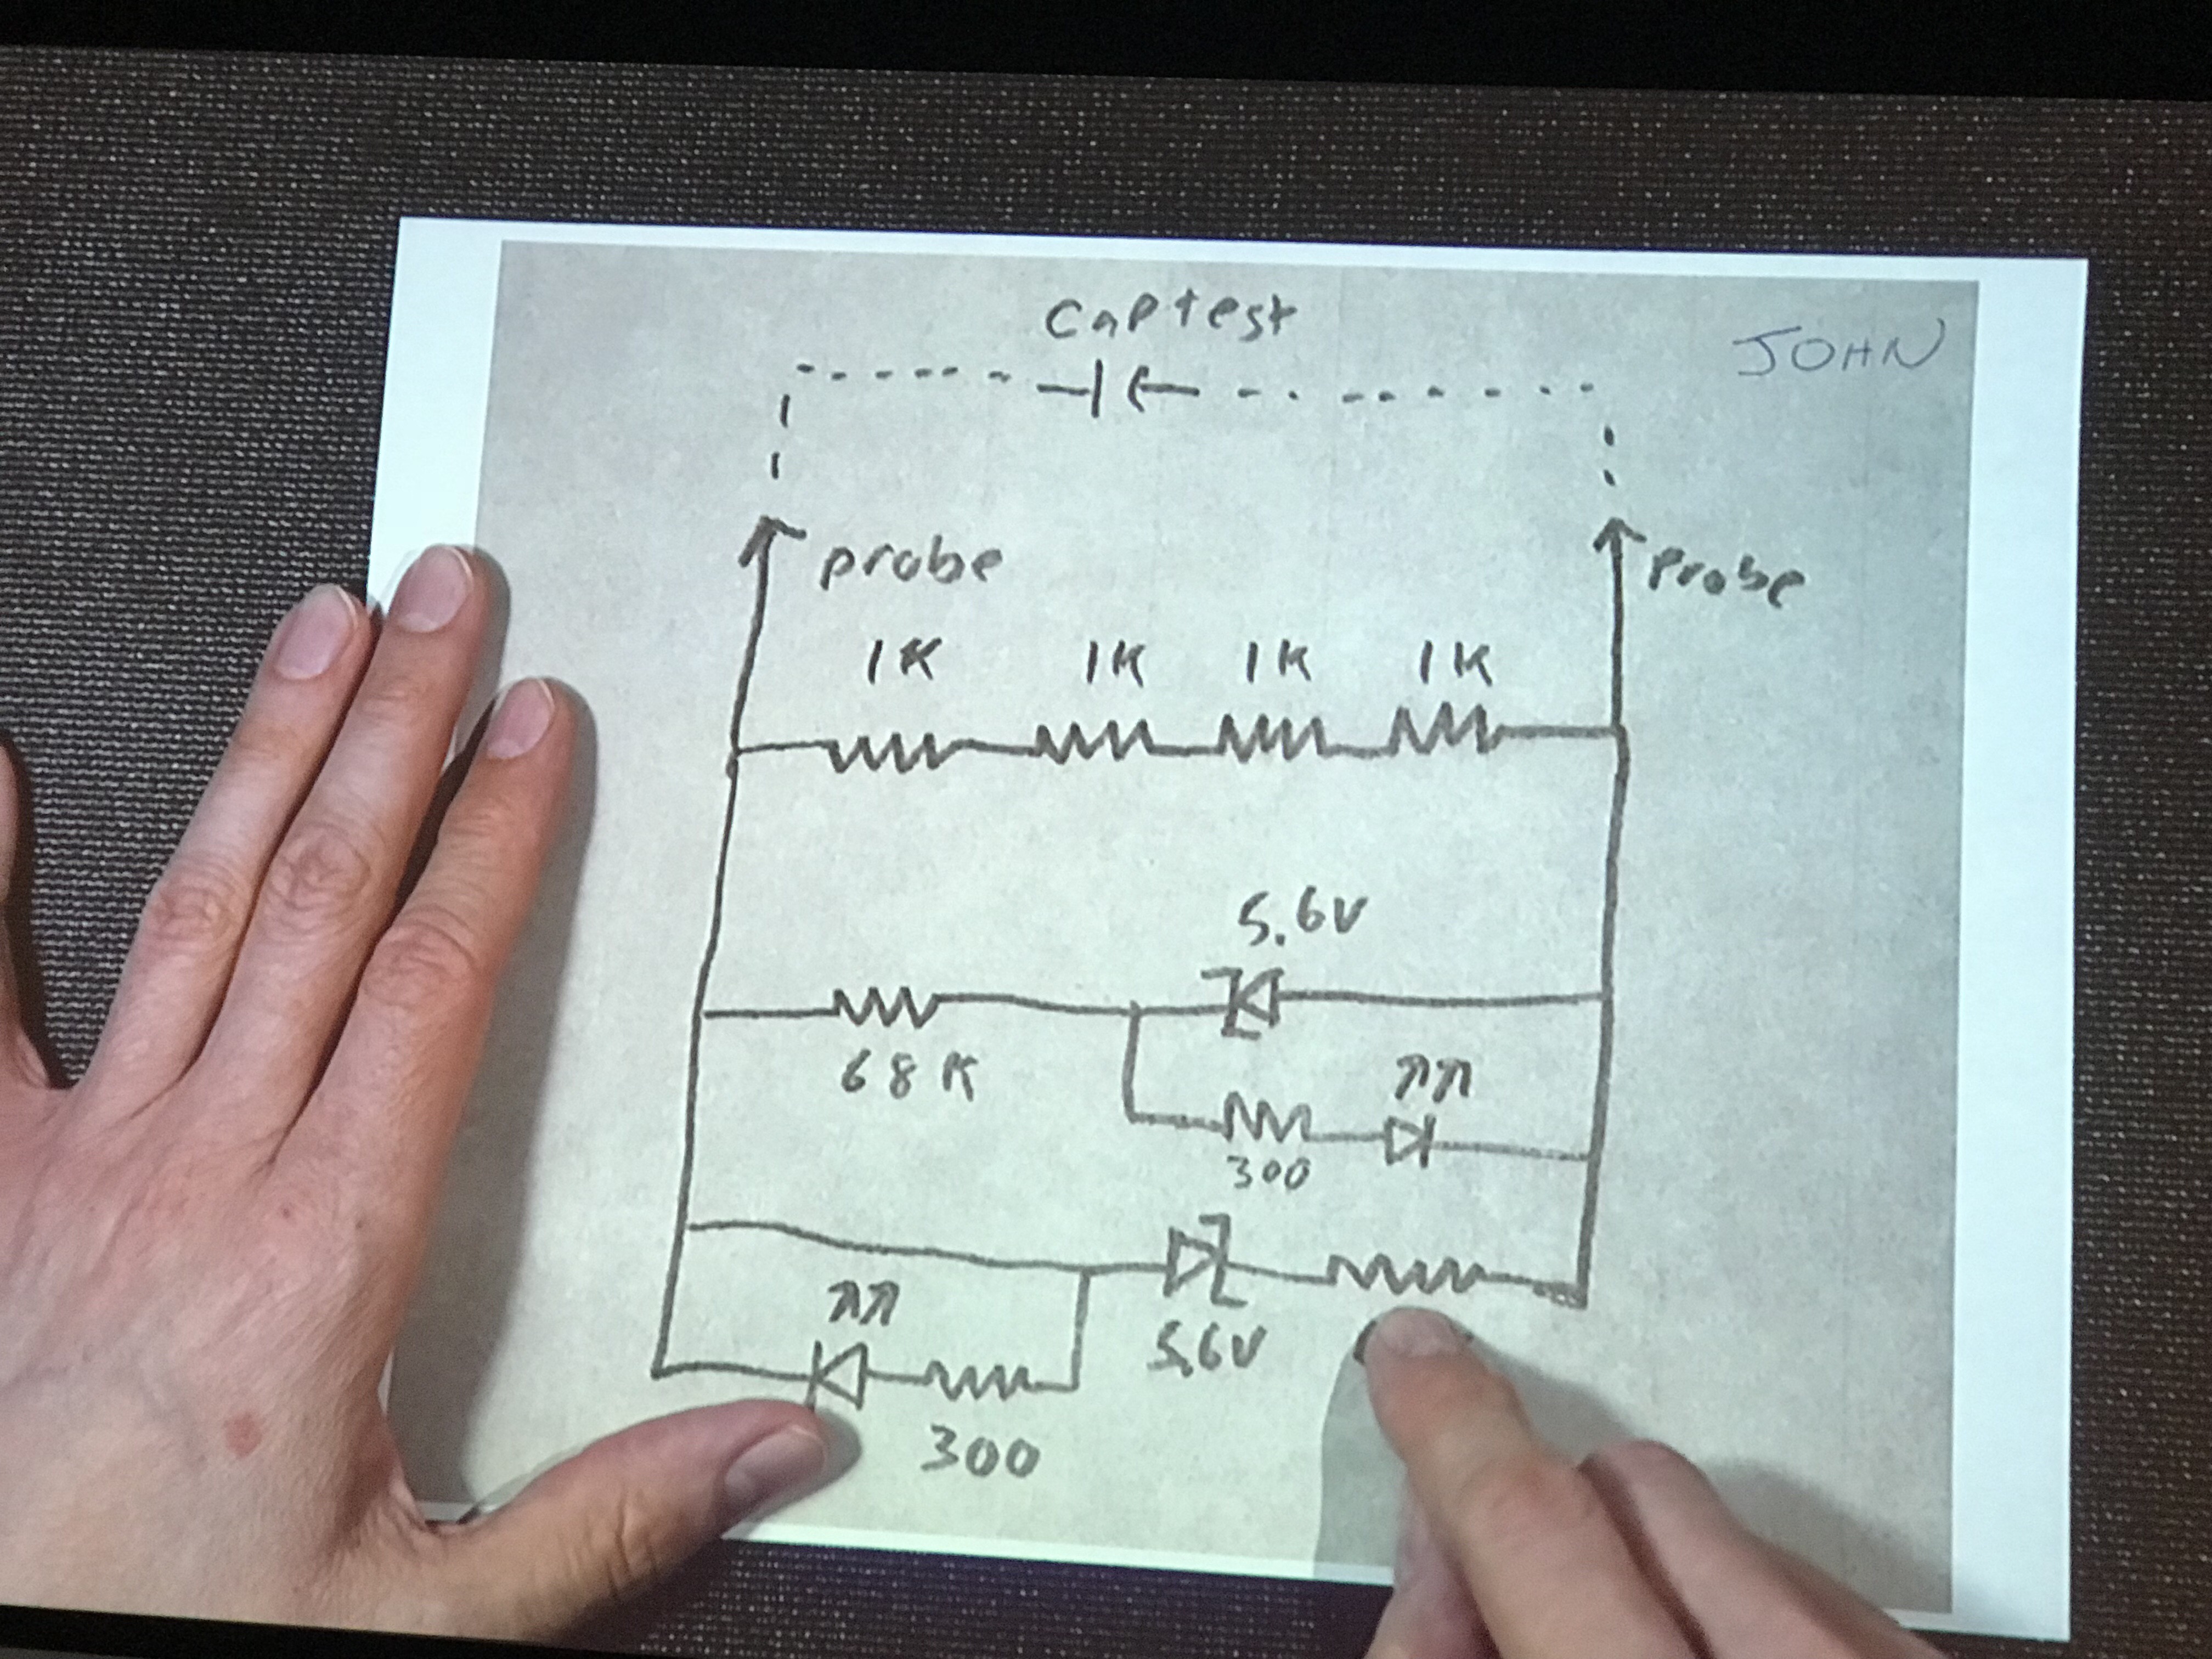 CAPtest
JOHN
probe
Probe
1K 1K 1K 1K
5.6V
68K
300
5.6V
300